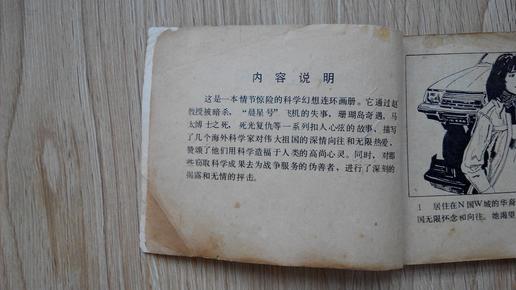 内容说明
这是一本情节惊险的科学幻想连环画册。它通过赵
教授被暗杀，“晨星号”飞机的失事，珊瑚岛奇遇，马
太博士之死，死光复仇等一系列扣人心弦的故事，描写
了几个海外科学家对伟大祖国的深情向往和无限热爱，
赞颂了他们用科学造福于人类的高尚心灵。同时，对那
些窃取科学成果去为战争服务的伪善者，进行了深刻的
揭露和无情的抨击。
1 居住在N国W城的华裔
国无限怀念和向往。她渴望